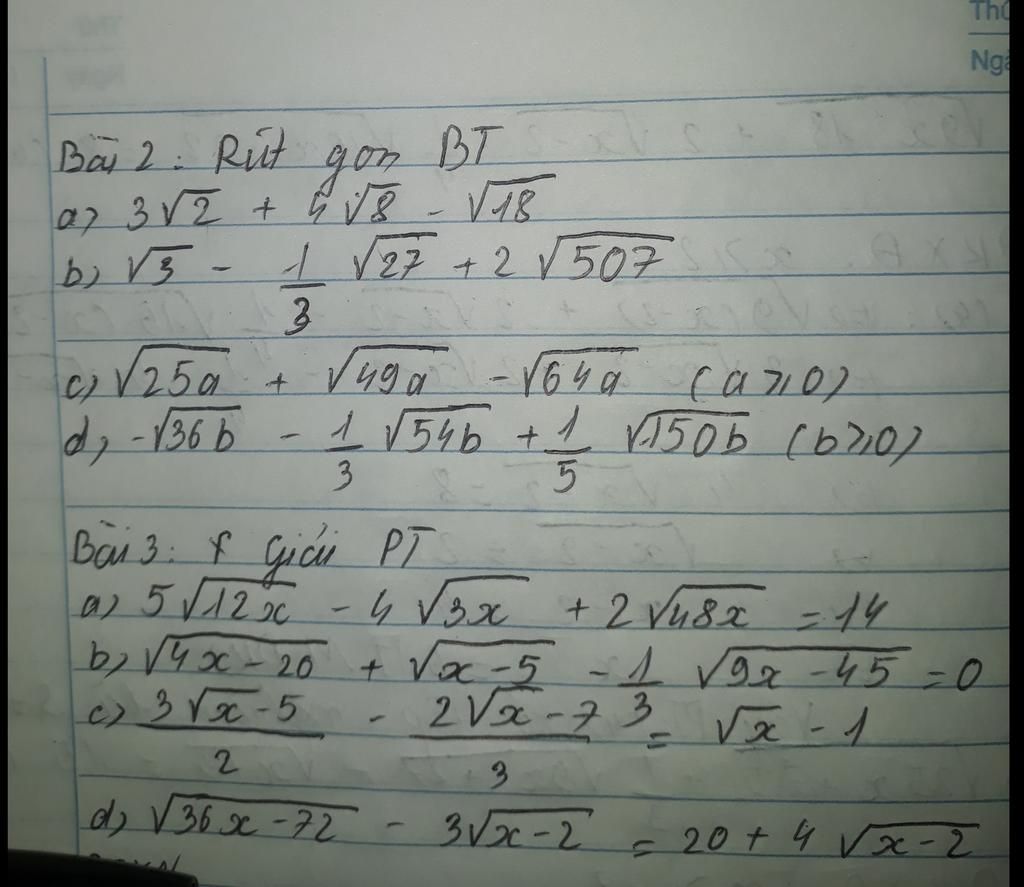 Thứ
Ngà
Bài 2 : Rút gọn BT
a) 3√2 + 4√8 - √18
b) √3 - 1/3 √27 + 2√507
c) √25a + √49a - √64a (a ≥ 0)
d) -√36b - 1/3 √54b + 1/5 √150b (b ≥ 0)
Bài 3 : Giải PT
a) 5√12x - 4√3x + 2√48x = 14
b) √4x-20 + √x-5 - 1/3 √9x-45 = 0
c) 3√x-5/2 - 2√x-7/3 = √x - 1
d) √36x-72 - 3√x-2 = 20 + 4√x-2